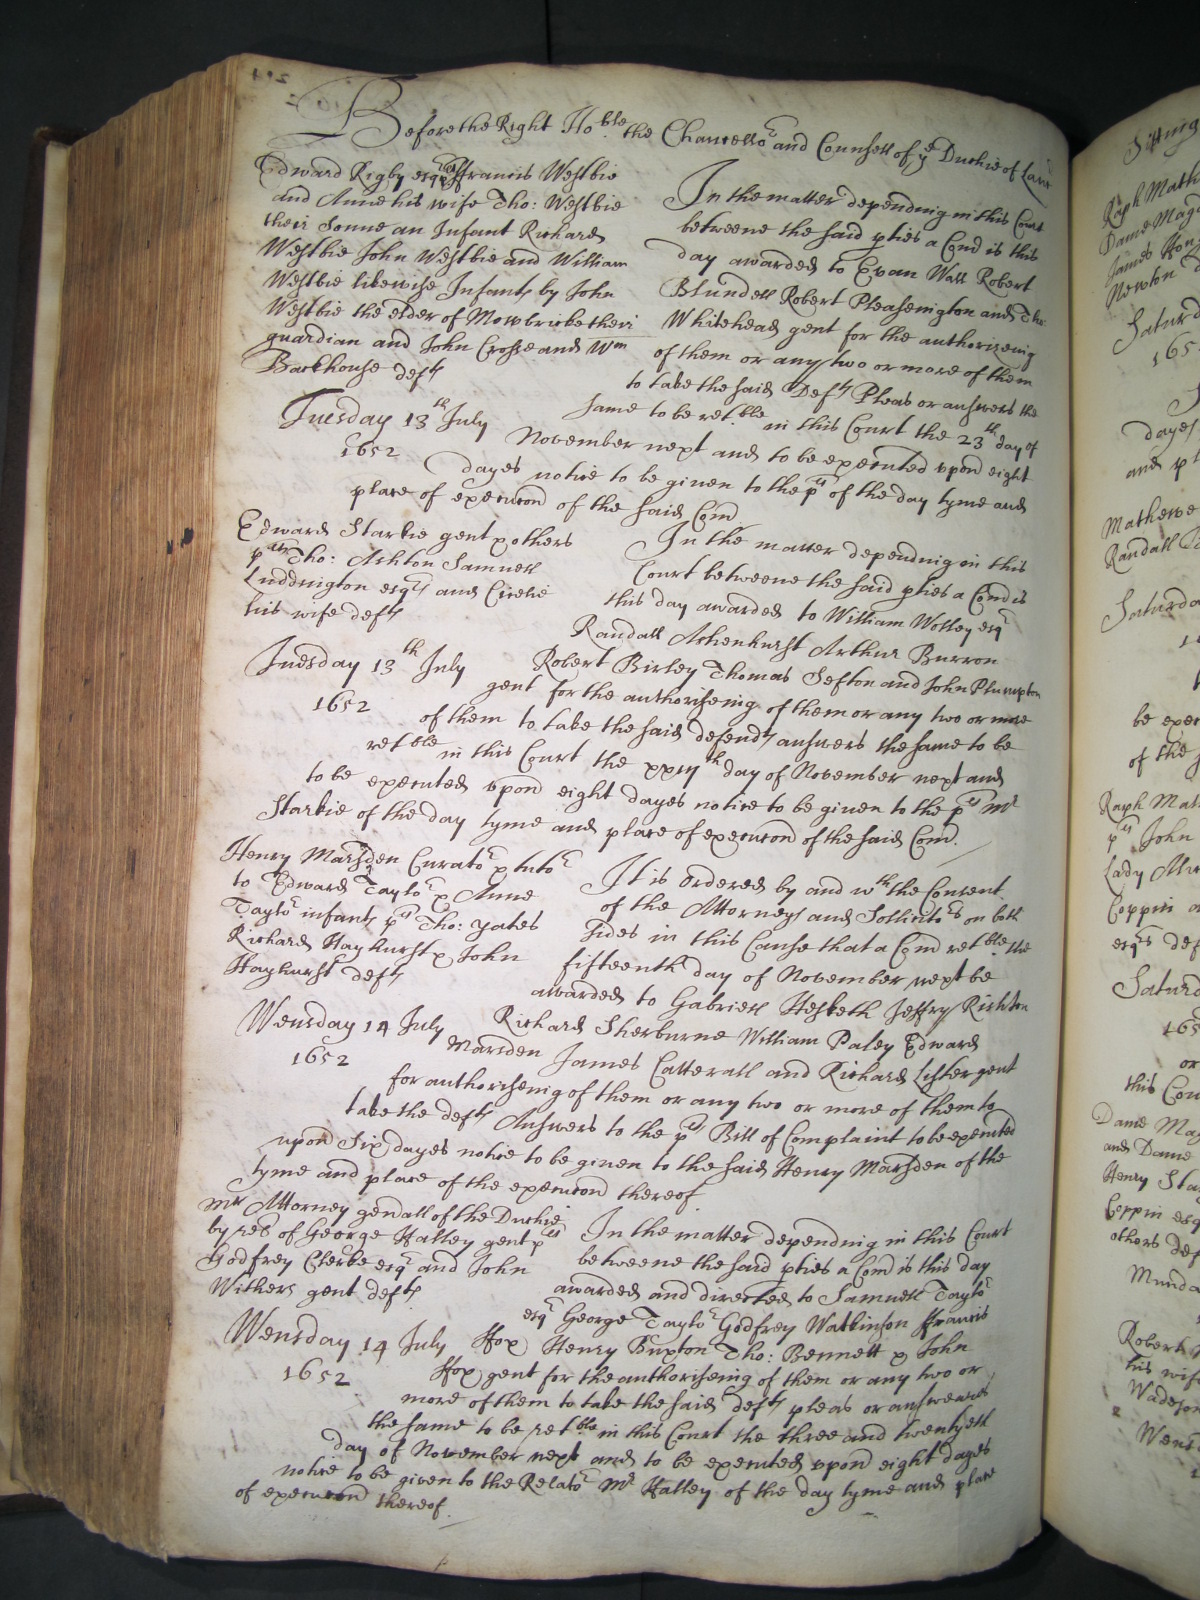 Before the Right Ho:ble the Chancellor and Counsell of ye Duchie of Lanc
Edward Rigby esqr plt ffrancis Westbie
and Anne his wife Tho: Westbie
their Sonne an Infant Richard
Westbie John Westbie and William
Westbie likewise Infants by John
Westbie the elder of Mowbricke their
guardian and John Crosse and Wm
Backhouse defts
Tuesday 13th July
1652
In the matter depending in this Court
betweene the said pties a Comd is this
day awarded to Evan Wall Robert
Blundell Robert Pleasington and Tho:
Whitehead gent for the authorizeing
of them or any two or more of them
to take the said Defts Pleas or answers the
same to be retble in this Court the 23th day of
November next and to be executed upon eight
dayes notice to be given to the pts of the day tyme and
place of execucon of the said Comd
Edward Starkie gent & others
plts Tho: Ashton Samuell
Luddington esqrs and Cicelie
his wife defts
Tuesday 13th July
1652
In the matter depending in this
Court betweene the said pties a Comd is
this day awarded to William Wolley esqr
Randall Ashenhurst Arthur Burron
Robert Birley Thomas Sefton and John Plumpton
gent for the authoriseing of them or any two or more
of them to take the said defendts answers the same to be
retble in this Court the xxiijth day of November next and
to be executed upon eight dayes notice to be given to the pts Mr
Starkie of the day tyme and place of execucon of the said Comd.
Henry Marsden Curator & tutor
to Edward Taylor & Anne
Taylor infants pts Tho: yates
Richard Hayhurst & John
Hayhurst defts
Wensday 14 July
1652
It is ordered by and wth the Consent
of the Attorneys and Sollicitors on both
sides in this Cause that a Comd retble the
fifteenth day of November next be
awarded to Gabriell Hesketh Jeffry Rishton
Richard Sherburne William Paley Edward
Marsden James Catterall and Richard Lister gent
for authoriseing of them or any two or more of them to
take the defts Answers to the pts Bill of Complaint to be executed
upon Six dayes notice to be given to the said Henry Marsden of the
tyme and place of the execucon thereof
Mr Attorney genall of the Duchie
by rel of George Halley gent plt
Godfrey Clerke esqr and John
Withers gent defts
Wensday 14 July
1652
In the matter depending in this Court
betweene the said pties a Comd is this day
awarded and directed to Samuell Taylor
esqr George Taylor Godfrey Watkinson ffrancis
ffox Henry Buxton Tho: Bennett & John
ffox gent for the authoriseing of them or any two or
more of them to take the said defts pleas or answeares
the same to be retble in this Court the three and twentyeth
day of November next and to be executed upon eight dayes
notice to be given to the Relator Mr Halley of the day tyme and place
of execucon thereof.
Sitting
Raph Math
Dame Mag
James
Newton
Saturd
165
dayes
and pl
Mathewe
Randall
Saturda
be exec
of the
Raph Mat
pts John
Lady
Coppin a
esqrs def
Saturd
165
or
this Cou
Dame Mag
and Dame
Henry Sta
Coppin esq
others def
Munda
Robert
his wife
Wadeson
Wens